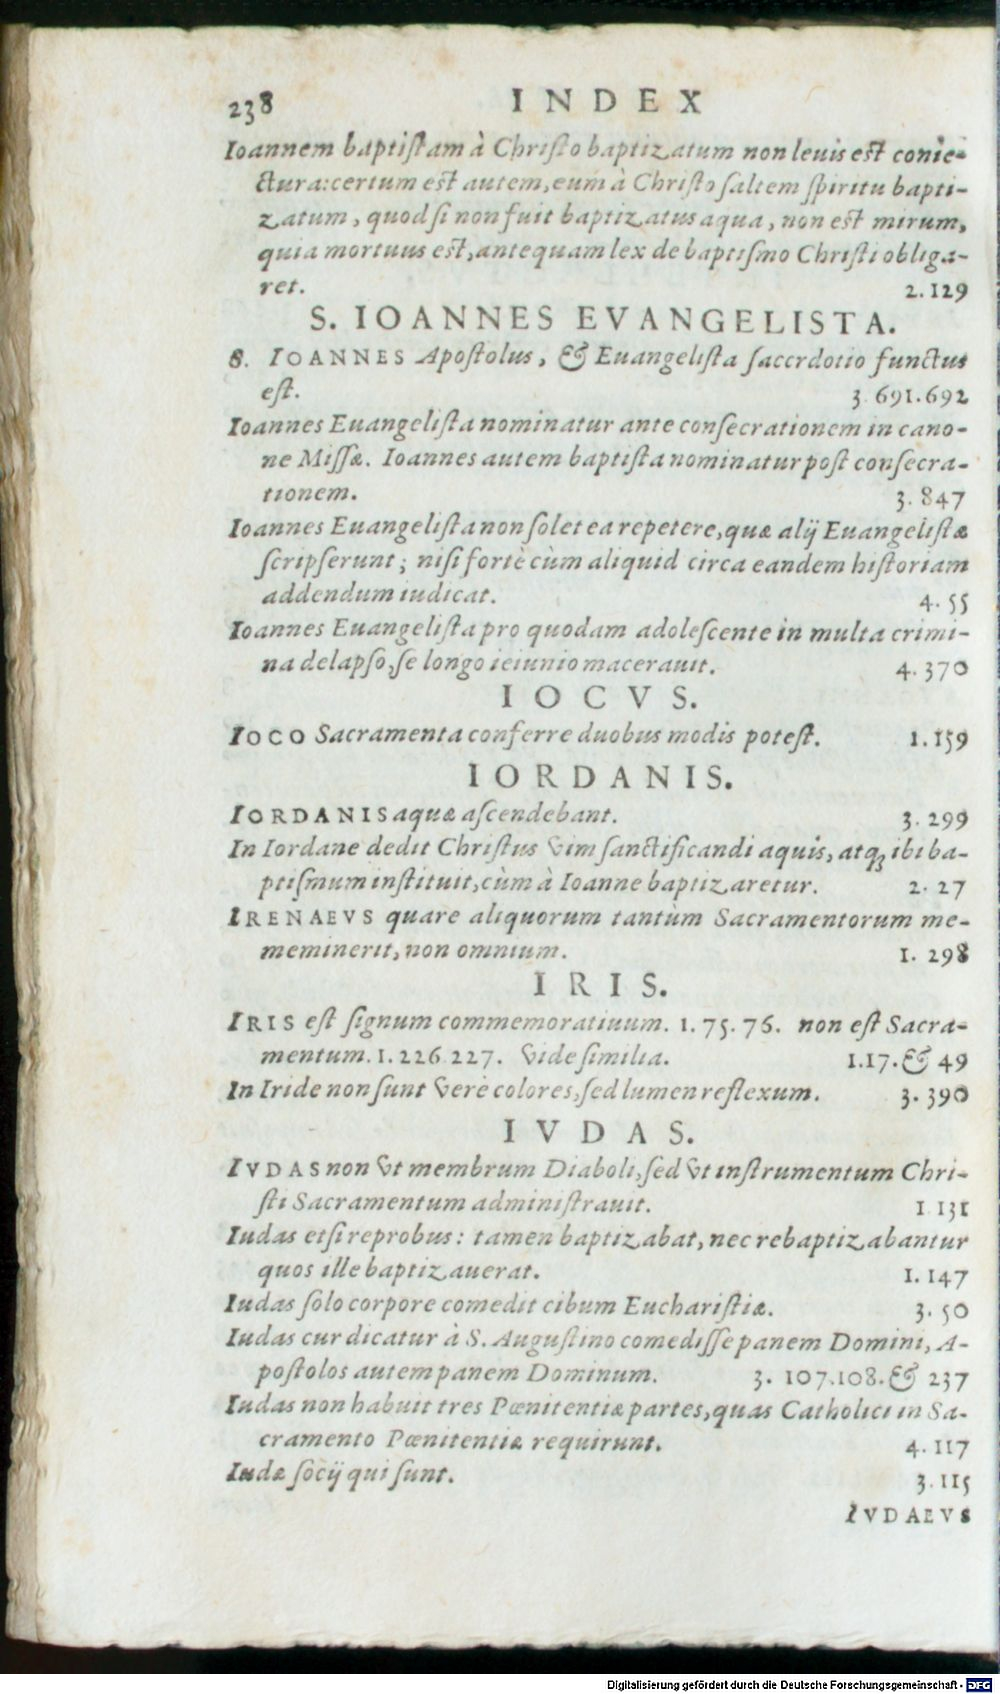 238 INDEX
Ioannem baptiſtam à Chriſto baptizatum non leuis eſt conie-
ctura: certum eſt autem, eum à Chriſto ſaltem ſpiritu bapti-
zatum, quod ſi non fuit baptizatus aqua, non eſt mirum,
quia mortuus eſt, antequam lex de baptiſmo Chriſti obliga-
ret. 2. 129
S. IOANNES EVANGELISTA.
S. IOANNES Apoſtolus, & Euangeliſta ſaccrdotio functus
eſt. 3. 691. 692
Ioannes Euangeliſta nominatur ante conſecrationem in cano-
ne Miſſæ. Ioannes autem baptiſta nominatur poſt conſecra-
tionem. 3. 847
Ioannes Euangeliſta non ſolet ea repetere, quæ alij Euangeliſtæ
ſcripſerunt; niſi fortè cùm aliquid circa eandem hiſtoriam
addendum iudicat. 4. 55
Ioannes Euangeliſta pro quodam adoleſcente in multa crimi-
na delapſo, ſe longo ieiunio macerauit. 4. 370
IOCVS.
IOCO Sacramenta conferre duobus modis poteſt. 1. 159
IORDANIS.
IORDANIS aquæ aſcendebant. 3. 299
In Iordane dedit Chriſtus vim ſanctificandi aquis, atq; ibi ba-
ptiſmum inſtituit, cùm à Ioanne baptizaretur. 2. 27
IRENAEVS quare aliquorum tantum Sacramentorum me-
meminerit, non omnium. 1. 298
IRIS.
IRIS eſt ſignum commemoratiuum. 1. 75. 76. non eſt Sacra-
mentum. 1. 226 227. vide ſimilia. 1.17. & 49
In Iride non ſunt verè colores, ſed lumen reflexum. 3. 390
IVDAS.
IVDAS non vt membrum Diaboli, ſed vt inſtrumentum Chri-
ſti Sacramentum adminiſtrauit. 1 131
Iudas etſi reprobus: tamen baptizabat, nec rebaptizabantur
quos ille baptizauerat. 1. 147
Iudas ſolo corpore comedit cibum Euchariſtiæ. 3. 50
Iudas cur dicatur à S. Auguſtino comediſſe panem Domini, A-
poſtolos autem panem Dominum. 3. 107.108. & 237
Iudas non habuit tres Pœnitentiæ partes, quas Catholici in Sa-
cramento Pœnitentiæ requirunt. 4. 117
Iudæ ſocij qui ſunt. 3. 115
IVDAEVS
Digitalisierung gefördert durch die Deutsche Forschungsgemeinschaft - DFG